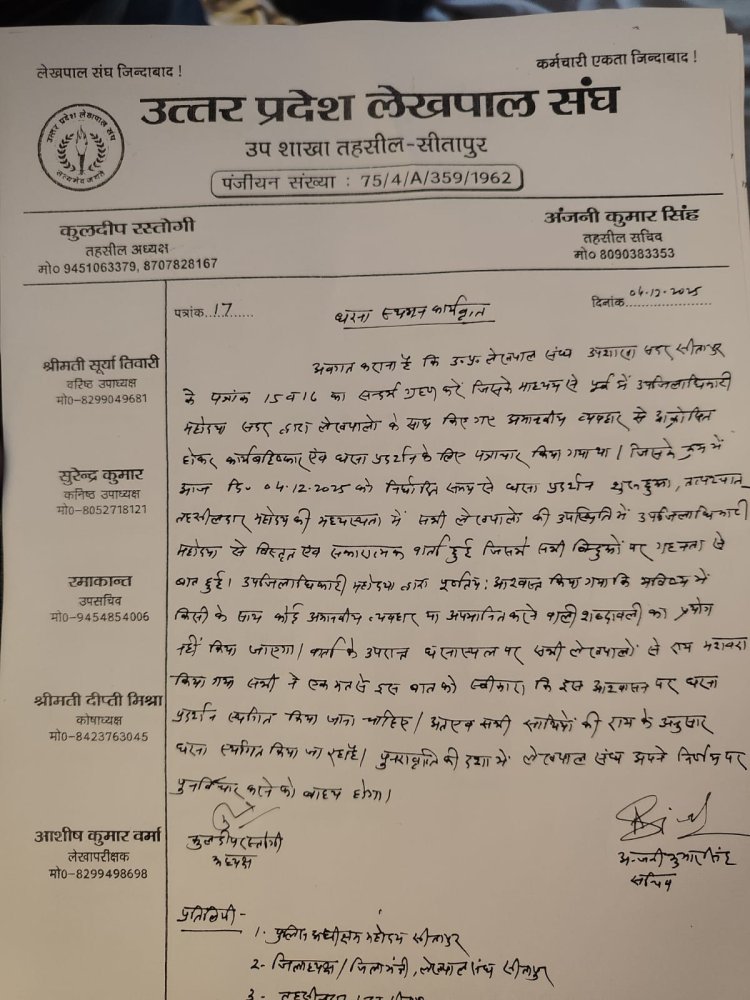 लेखपाल संघ जिन्दाबाद !
कर्मचारी एकता जिन्दाबाद !
उत्तर प्रदेश लेखपाल संघ
उत्तर प्रदेश लेखपाल संघ
सत्यमेव जयते
उप शाखा तहसील-सीतापुर
पंजीयन संख्या : 75/4/A/359/1962
कुलदीप रस्तोगी
तहसील अध्यक्ष
मो० 9451063379, 8707828167
अंजनी कुमार सिंह
तहसील सचिव
मो० 8090383353
श्रीमती सूर्या तिवारी
वरिष्ठ उपाध्यक्ष
मो०-8299049681
सुरेन्द्र कुमार
कनिष्ठ उपाध्यक्ष
मो०-8052718121
रमाकान्त
उपसचिव
मो०-9454854006
श्रीमती दीप्ती मिश्रा
कोषाध्यक्ष
मो०-8423763045
आशीष कुमार वर्मा
लेखापरीक्षक
मो०-8299498698
पत्रांक..17......
दिनांक..04.12.2025
धरना स्थगन कार्यवृत्त
अवगत कराना है कि उ०प्र० लेखपाल संघ उपशाखा सदर सीतापुर
के पत्रांक 15 व 16 का सन्दर्भ ग्रहण करें जिसके माध्यम से पूर्व में उपजिलाधिकारी
महोदया सदर द्वारा लेखपालो के साथ किए गए अमानवीय व्यवहार से आक्रोशित
होकर कार्यबहिष्कार एंव धरना प्रदर्शन के लिए पत्राचार किया गया था। जिसके क्रम में
आज दि० 04.12.2025 को निर्धारित समय से धरना प्रदर्शन शुरू हुआ, तत्पश्चात
तहसीलदार महोदय की मध्यस्थता में सभी लेखपालो की उपस्थिति में उपजिलाधिकारी
महोदया से विस्तृत एंव सकारात्मक वार्ता हुई जिसमें सभी बिन्दुओं पर गहनता से
बात हुई। उपजिलाधिकारी महोदया द्वारा पूर्णतय: आश्वस्त किया गया कि भविष्य में
किसी के साथ कोई अमानवीय व्यवहार या अपमानित करने वाली शब्दावली का प्रयोग
नहीं किया जाएगा। वार्ता के उपरान्त धरनास्थल पर सभी लेखपालों से राय मशवरा
किया गया सभी ने एक मत से इस बात को स्वीकारा कि इस आश्वासन पर धरना
प्रदर्शन स्थगित किया जाना चाहिए। अतएव सभी साथियों की राय के अनुसार
धरना स्थगित किया जा रहा है। पुनरावृति की दशा में लेखपाल संघ अपने निर्णय पर
पुनर्विचार करने को बाध्य होगा।
कुलदीप रस्तोगी
अध्यक्ष
अन्जनी कुमार सिंह
सचिव
प्रतिलिपी-
1- पुलिस अधीक्षक महोदय सीतापुर
2- जिलाध्यक्ष/जिलामंत्री, लेखपाल संघ सीतापुर
3- तहसीलदार